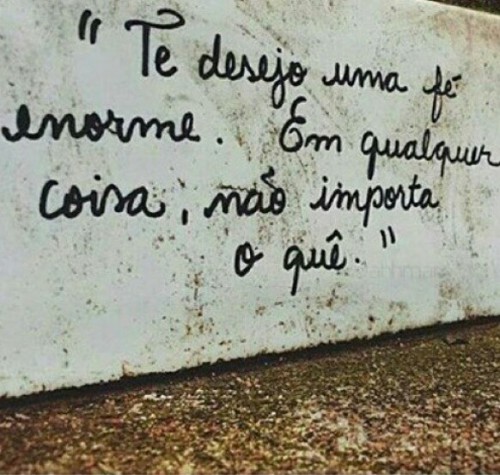 "Te desejo uma fé
enorme. Em qualquer
coisa, não importa
o quê."